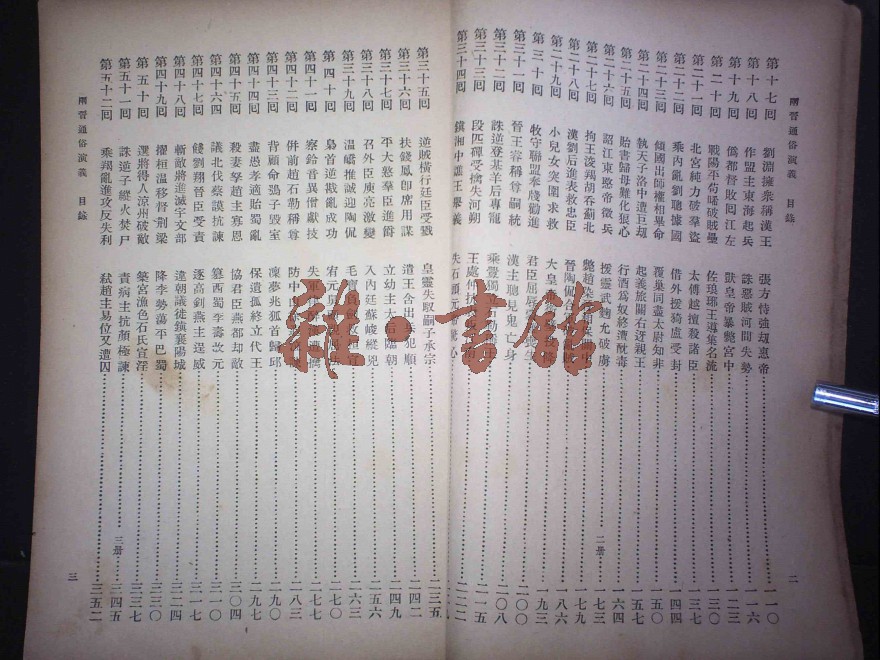 兩晉通俗演義 目錄 二
第十七回 劉淵擁衆稱漢王 張方恃強劫惠帝 一一〇
第十八回 作盟主東海起兵 誅惡賊河間失勢 一一六
第十九回 僞都督敗回江左 獃皇帝暴斃宮中 一二三
第二十回 戰陽平苟晞破賊壘 佐琅琊王導集名流 一三〇
第二十一回 北宮純力破羣盜 太傅越擅殺諸臣 一三七
第二十二回 乘內亂劉聰據國 借外援猗盧受封 一四四
第二十三回 傾國出師權相畢命 覆巢同盡太尉知非 一五〇
第二十四回 執天子洛中遭巨劫 起義旅關右迓親王
第二十五回 貽書歸母難化狠心 行酒爲奴終遭酖毒 六四
第二十六回 詔江東愍帝徵兵 援靈武麴允破虜 二册 一七三
第二十七回 拘王浚羯胡吞薊北 斃趙染 一七九
第二十八回 漢劉后進表救忠臣 晉陶侃 賊 一八六
第二十九回 小兒女突圍求救 大皇帝 一九三
第三十回 牧守聯盟奉牋勸進 君臣屈辱 生 二〇〇
第三十一回 晉王睿稱尊嗣統 漢主聰見鬼亡身 二〇八
第三十二回 誅逆登基羊后專寵 乘釁獨立 二一五
第三十三回 段匹磾受擒失河朔 王處仲抗 二二二
第三十四回 鎮湘中譙王舉義 失石頭元帝驚心
第三十五回 逆賊橫行廷臣受戮 皇靈失馭嗣子承宗 二三五
第三十六回 扶錢鳳卽席用謀 遣王含出兵犯順 二四二
第三十七回 平大憝羣臣進爵 立幼主太后臨朝 二四九
第三十八回 召外臣庾亮激變 入內廷蘇峻縱兇 二五六
第三十九回 溫嶠推誠迎陶侃 毛寶 二六三
第四十回 梟首逆戡亂成功 宥元舅 二七〇
第四十一回 察鈴音異僧獻技 失軍 擒 二七七
第四十二回 併前趙石勒稱尊 防中 二八三
第四十三回 背顧命鴟子毀室 凜夢兆狐首歸邱 二九〇
第四十四回 盡愚孝適貽蜀亂 保遺孤終立代王 二九七
第四十五回 殺妻孥趙主寡恩 協君臣燕都却敵 三〇四
第四十六回 議北伐蔡謨抗諫 篡西蜀李壽改元 三一〇
第四十七回 餞劉翔晉臣受責 逐高釗燕主逞威 三一七
第四十八回 斬敵將進滅宇文部 違朝議徙鎮襄陽城 三二四
第四十九回 擢桓溫移督荆梁 降李勢蕩平巴蜀 三三〇
第五十回 選將得人涼州破敵 築宮漁色石氏宣淫 三三七
第五十一回 誅逆子縱火焚尸 責病主抗顏極諫 三册 三四五
第五十二回 乘翔亂進攻反失利 弒趙主易位又遭囚 三五二
兩晉通俗演義 目錄 三
雜·書館